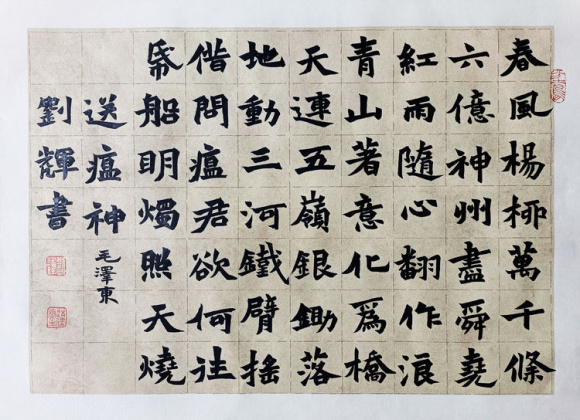 春風楊柳萬千條
六億神州盡舜堯
紅雨隨心翻作浪
青山著意化爲橋
天連五嶺銀鋤落
地動三河鐵臂搖
借問瘟君欲何往
帋船明燭照天燒
送瘟神 毛澤東
劉輝書